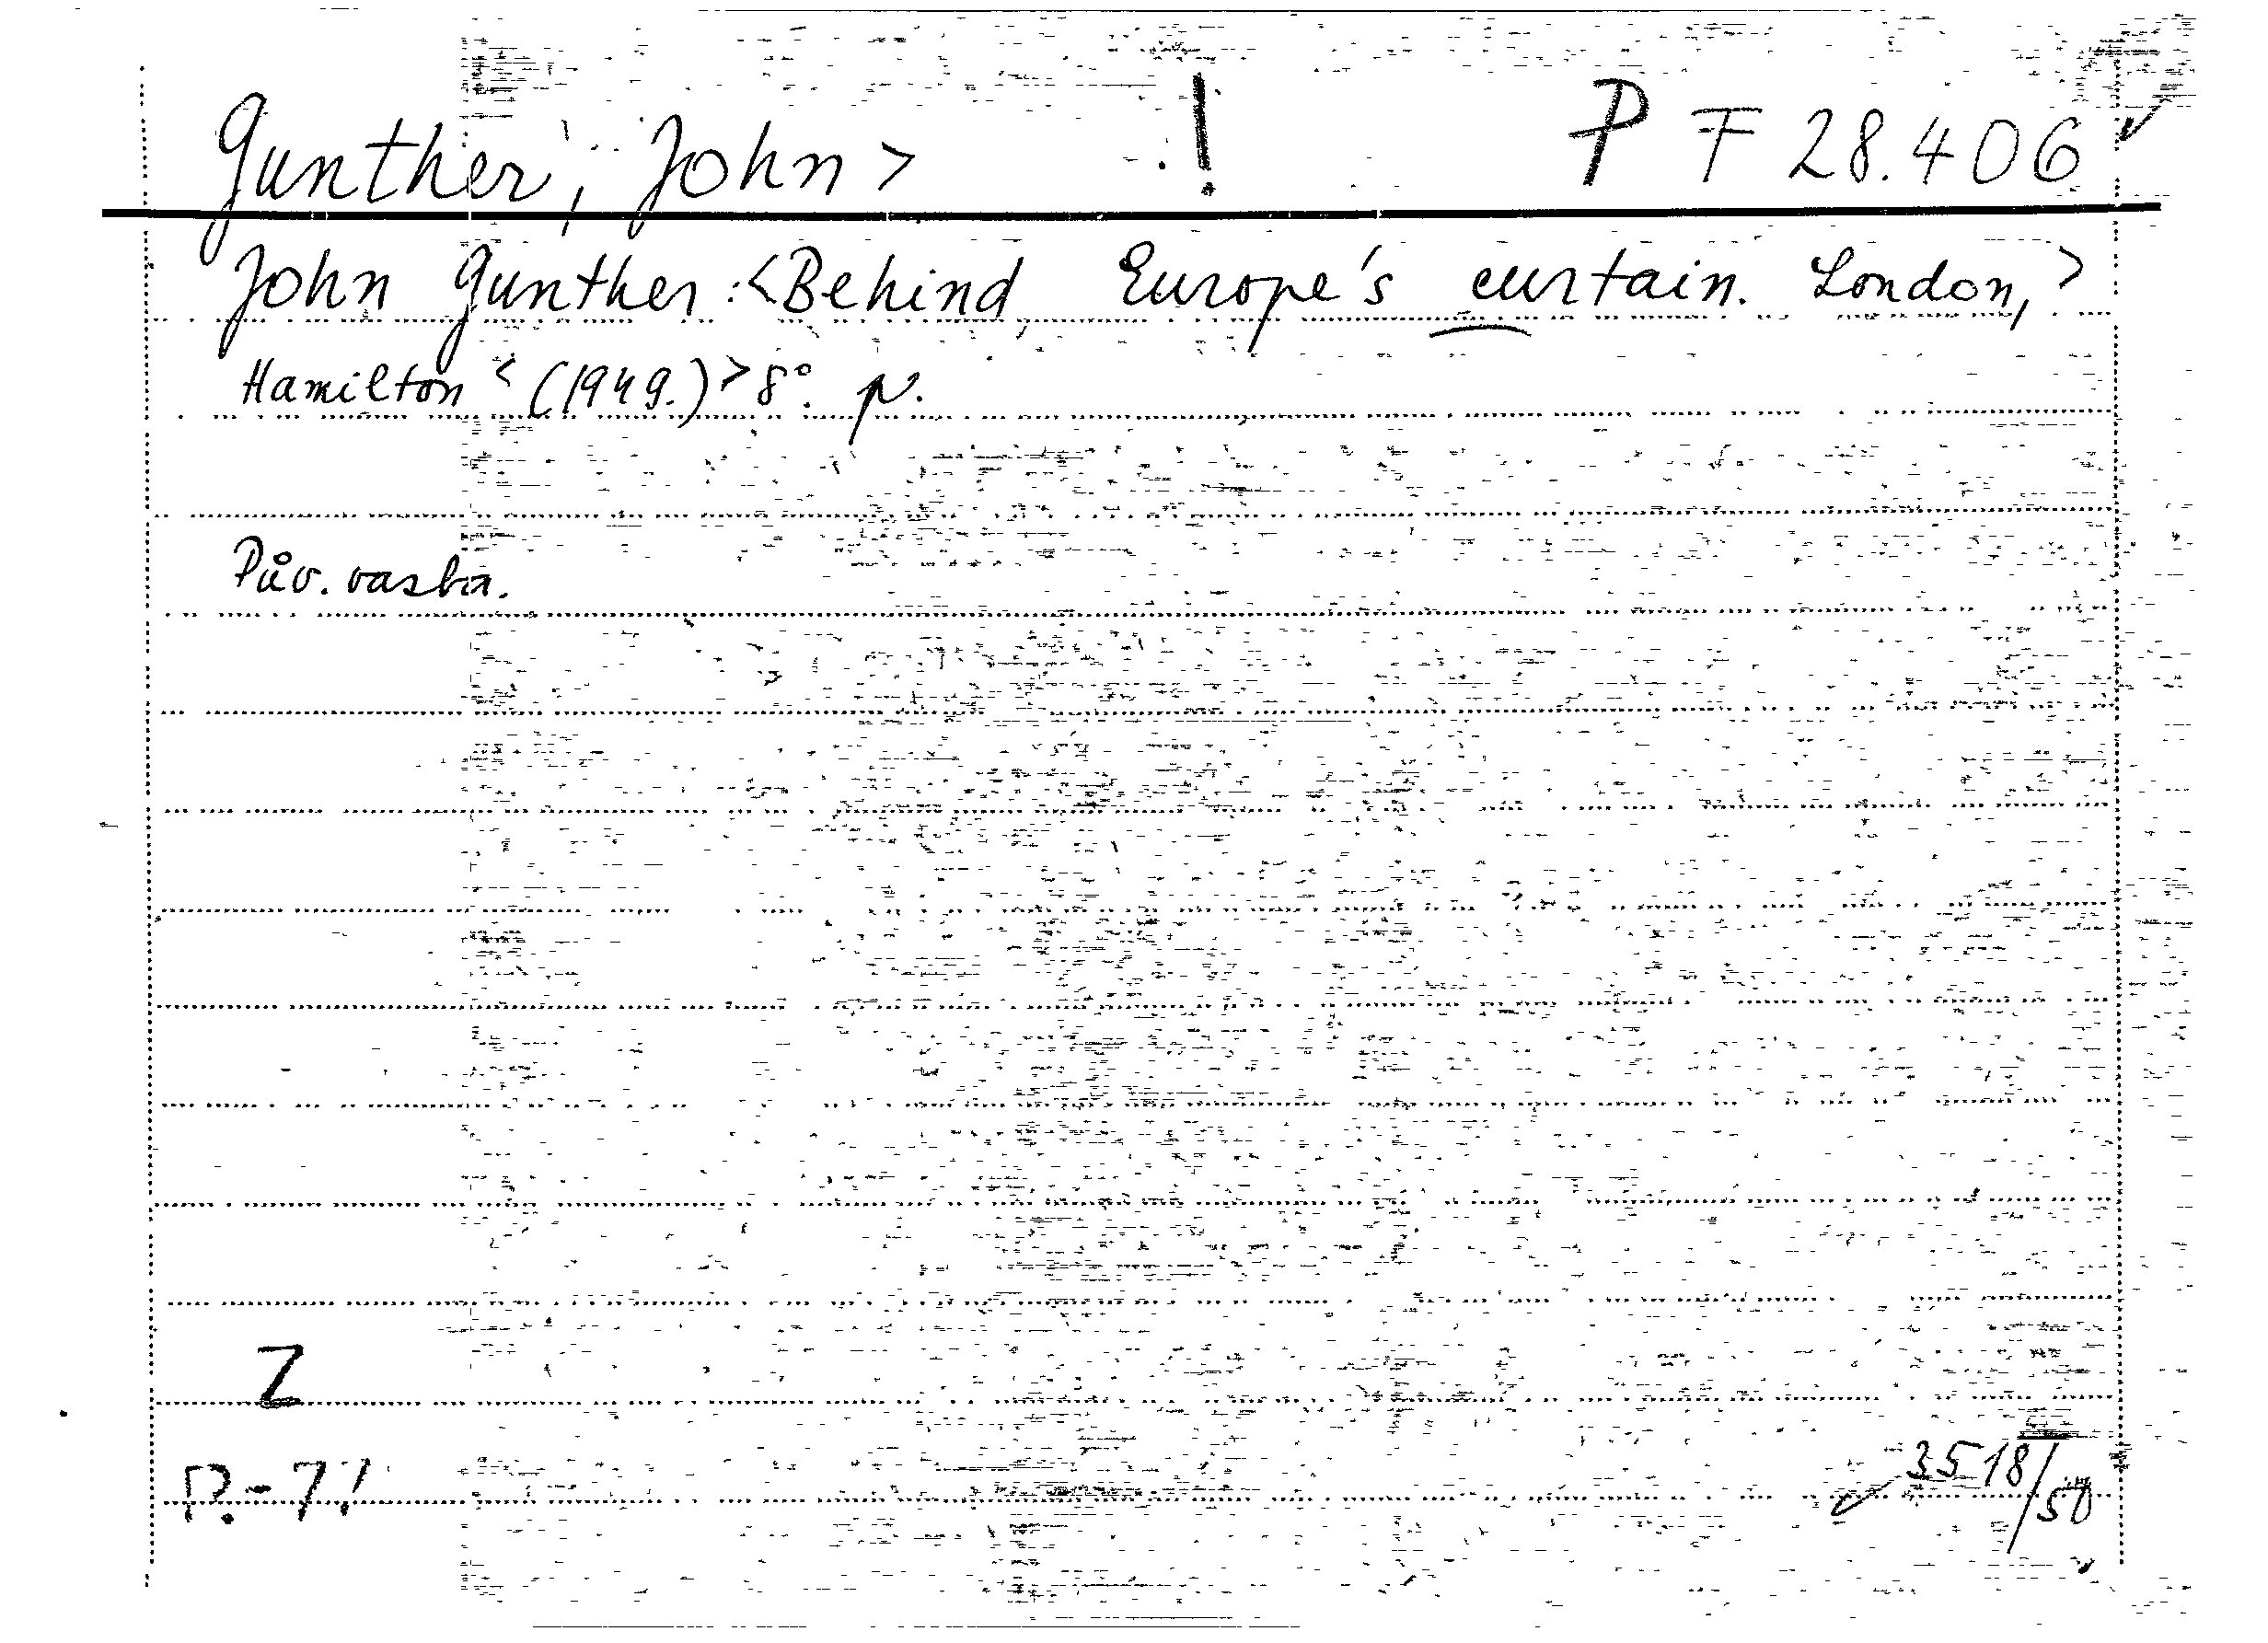 Gunther, John > ! P F 28.406
John Gunther: <Behind Europe's curtain. London, >
Hamilton < (1949.) > 8°. p.
Pův. vazba.
Z
P.-71
3518/50